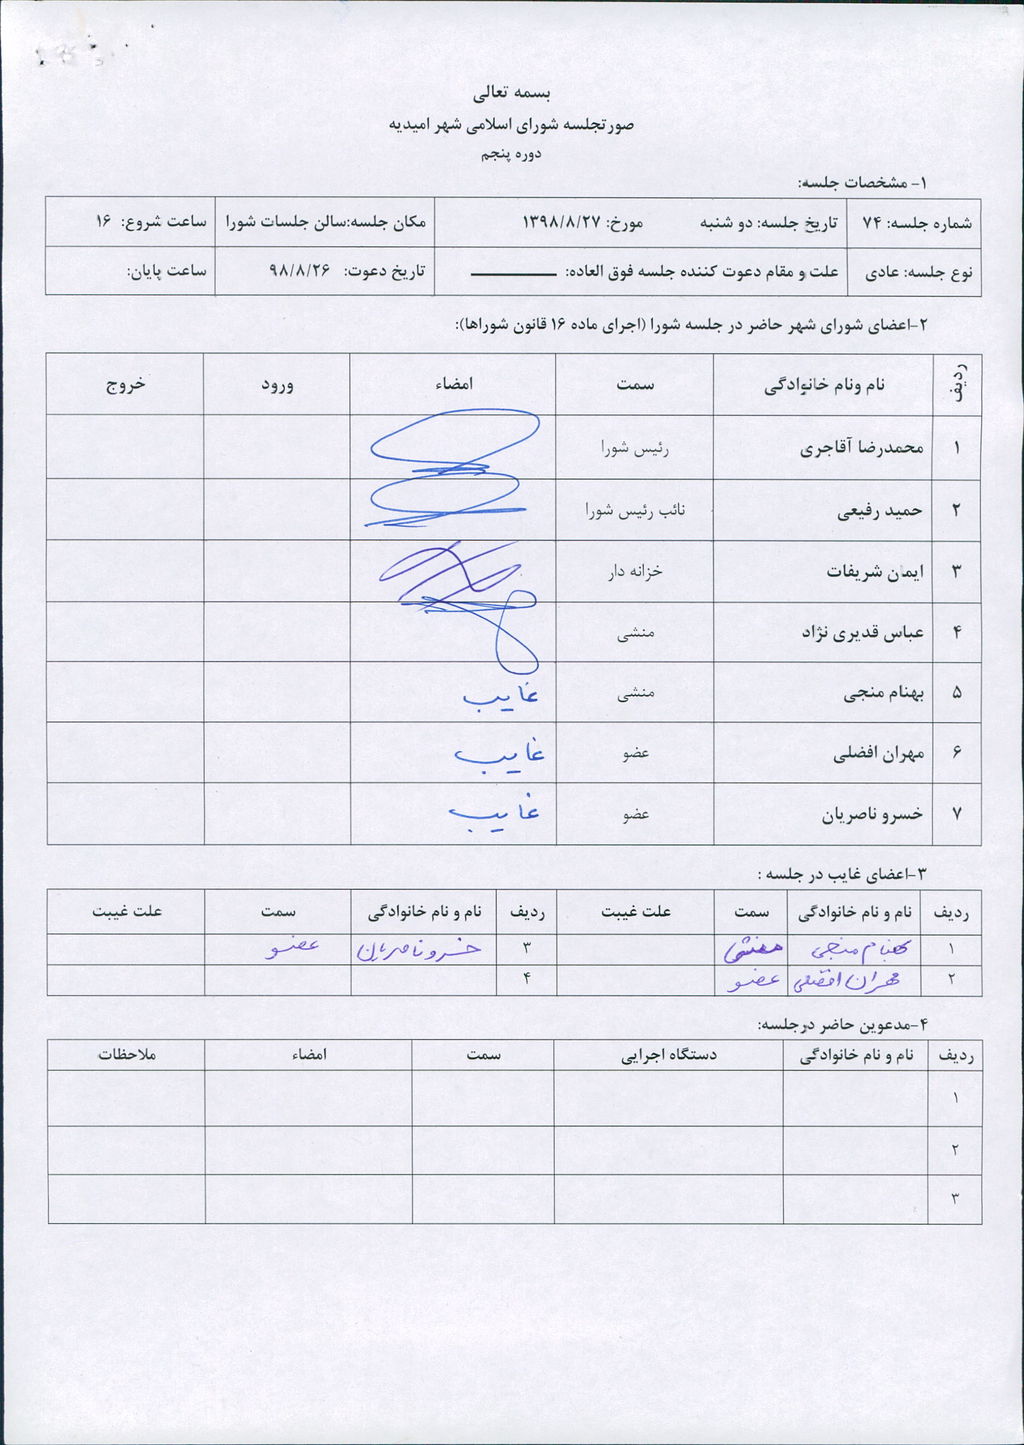 بسمه تعالی
صورتجلسه شورای اسلامی شهر امیدیه
دوره پنجم
۱- مشخصات جلسه:
شماره جلسه: ۷۴ تاریخ جلسه: دو شنبه مورخ: ۱۳۹۸/۸/۲۷ مکان جلسه:سالن جلسات شورا ساعت شروع: ۱۶
نوع جلسه: عادی علت و مقام دعوت کننده جلسه فوق العاده: تاریخ دعوت: ۹۸/۸/۲۶ ساعت پایان:
۲-اعضای شورای شهر حاضر در جلسه شورا (اجرای ماده ۱۶ قانون شوراها):
ردیف نام ونام خانوادگی سمت امضاء ورود خروج
۱ محمدرضا آقاجری رئیس شورا
۲ حمید رفیعی نائب رئیس شورا
۳ ایمان شریفات خزانه دار
۴ عباس قدیری نژاد منشی
۵ بهنام منجی منشی غایب
۶ مهران افضلی عضو غایب
۷ خسرو ناصریان عضو غایب
۳-اعضای غایب در جلسه :
ردیف نام و نام خانوادگی سمت علت غیبت ردیف نام و نام خانوادگی سمت علت غیبت
۱ بهنام منجی منشی ۳ خسرو ناصریان عضو
۲ مهران افضلی عضو ۴
۴-مدعوین حاضر درجلسه:
ردیف نام و نام خانوادگی دستگاه اجرایی سمت امضاء ملاحظات
۱
۲
۳